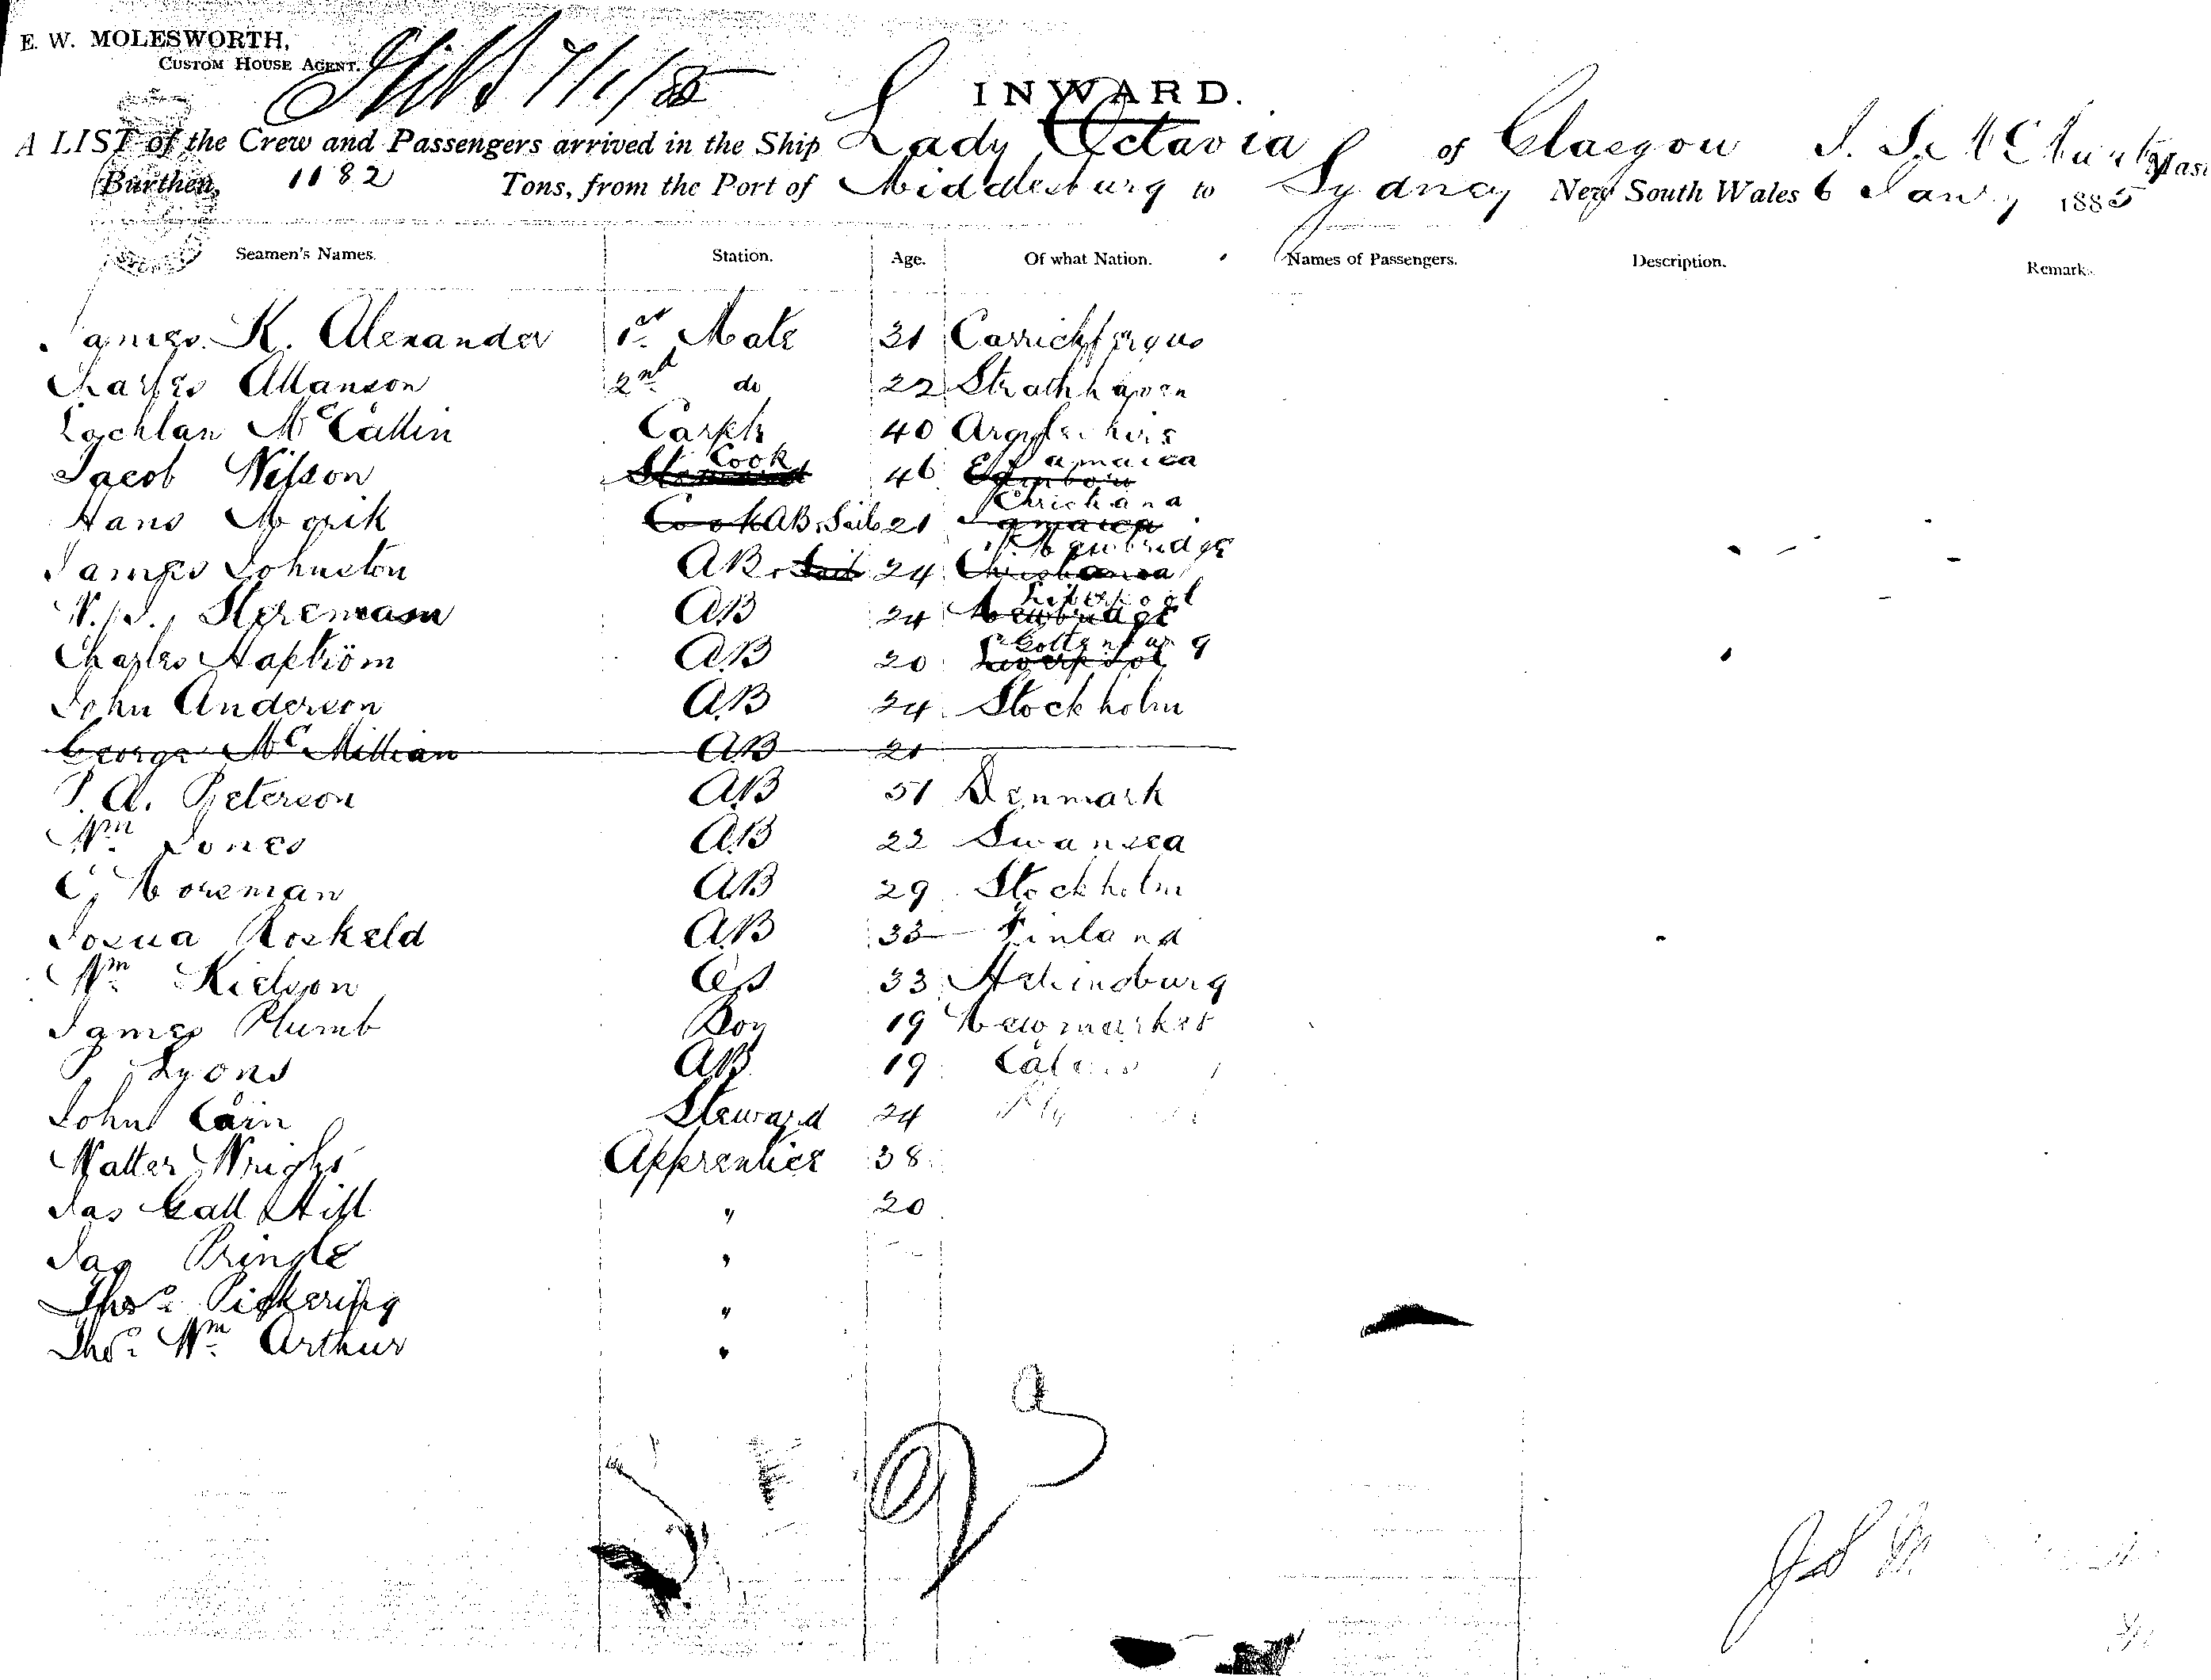 E. W. MOLESWORTH,
CUSTOM HOUSE AGENT.
7/1/85
INWARD.
A LIST of the Crew and Passengers arrived in the Ship Lady Octavia of Glasgow
Burthen, 1182 Tons, from the Port of Middlesburg to Sydney New South Wales 6 Jany 1885
Seamen's Names. Station. Age. Of what Nation. Names of Passengers. Description. Remarks.
James K. Alexander 1st Mate 31 Carrickfergus
Charles Allanson 2nd do 22 Strathhaven
Lachlan McCallin Carptr 40 Argyleshire
Jacob Nilsson Steward Cook 46 Jamaica
Hans Morik Cook AB. Sails 21 Jamaica Christiana
James Johnston AB. Sails 24 Christiania Newbridge
AB 24 Newbridge Liverpool
Charles AB 20 Liverpool Gottenburg
John Anderson AB 24 Stockholm
George McMillian AB 21
P. A. Peterson AB 51 Denmark
Wm Jones AB 22 Swansea
C. Noreman AB 29 Stockholm
Josua Roskeld AB 33 Finland
Wm Kielson OS 33
James Plumb Boy 19 Newmarket
P Lyons AB 19
John Cain Steward 24
Walter Wright Apprentice 38
Jas Gall Hill " 20
Jas Pringle "
Thos. Pickering "
Thos. Wm Arthur "